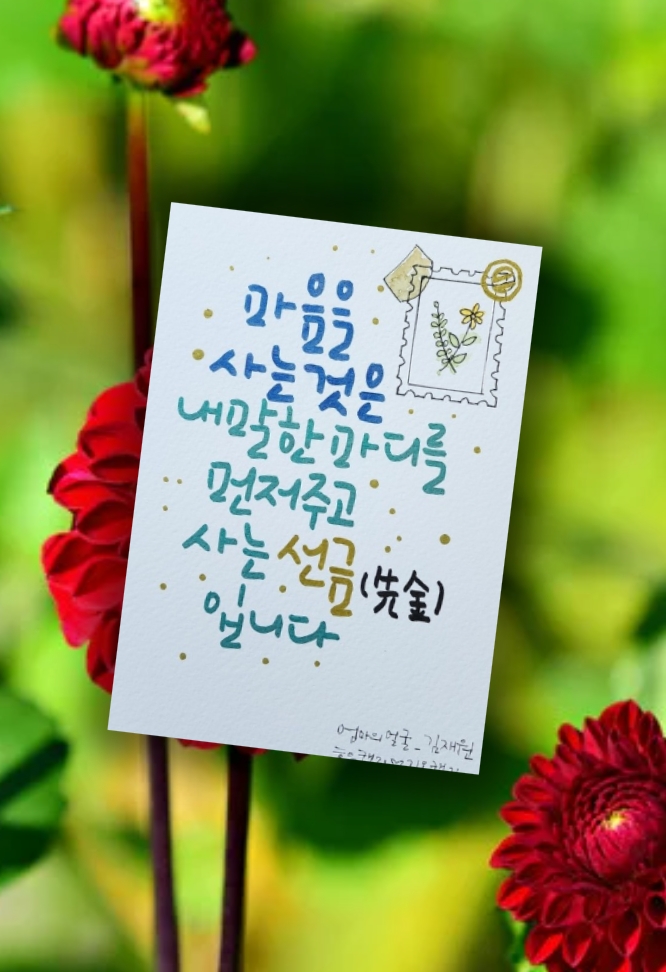 마음을
사는것은
내말한마디를
먼저주고
사는 선금(先金)
입니다
엄마의 얼굴_김재원